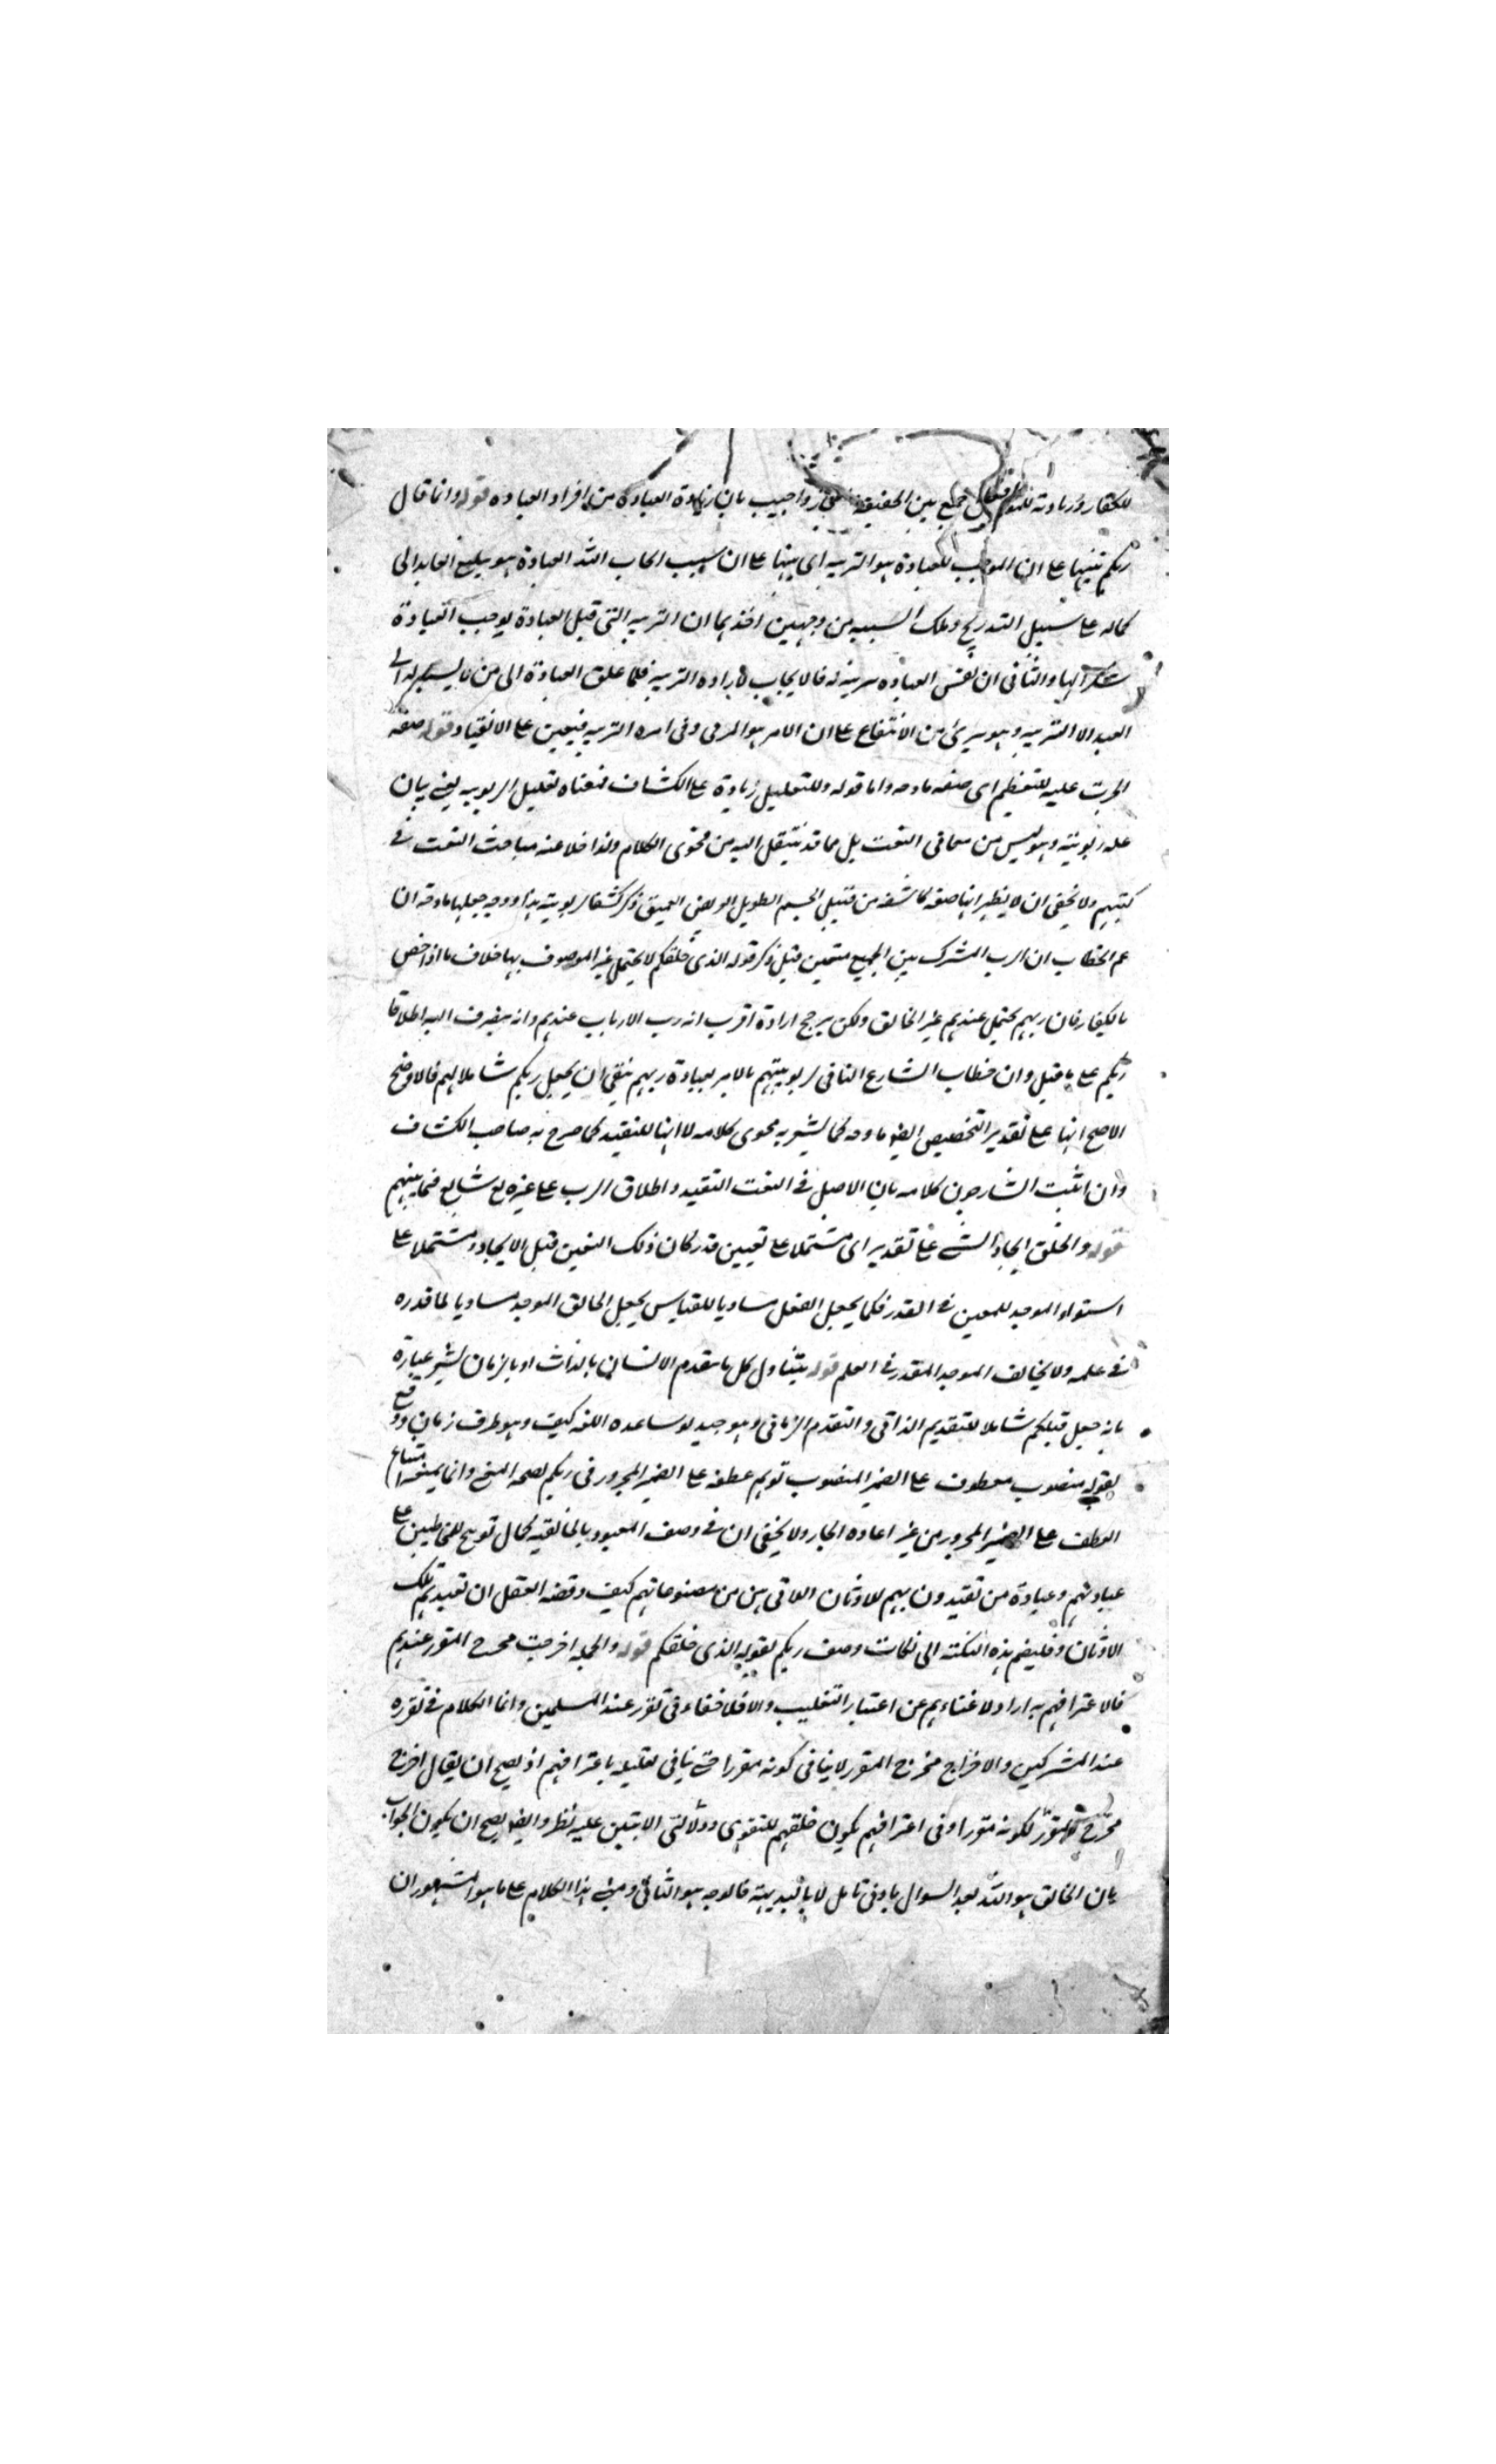 للكفار وزيادته للمؤمنين جمع بين الحقيقة واجيب بان زيادة العبادة من افراد العبادة قوله وانما قال
ربكم تنبيها على ان الموجب للعبادة هو التربيه اى بينها على ان سبب ايجاب الله العبادة هو تبليغ العابد الى
كماله على سبيل التدريج وتلك السببيه من وجهين احدهما ان التربيه التى قبل العبادة يوجب العبادة
شكرا لها والثانى ان نفس العباده تربية له فالايجاب لاراده التربية فلما علق العبادة الى من
العبد الا التربيه وهو برئ من الانتفاع على ان الامر هو المربى وفى امره التربيه فيتعين على الانقياد قوله صفة
اجريت عليه للتعظيم اى صفه مادحه واما قوله وللتعليل زيادة على الكشاف فمعناه تعليل الربوبيه يعنى بيان
علة ربوبيته وهو ليس من معانى النعت بل مما قد ينتقل اليه من فحوى الكلام ولذا خلا عنه مباحث النعت فى
كتبهم ولا يخفى ان لا يظهر انها صفه كاشفه من قبيل الجسم الطويل العريض العميق ذكر كشفا ربوبيته هذا ووجه جعلها مادحه ان
عم الخطاب ان الرب المشترك بين الجميع متعين قبل ذكر قوله الذى خلقكم لا يحتمل غير الموصوف بها خلاف ما اذا خص
بالكفار فان ربهم يحتمل عندهم غير الخالق ولكن يرجح ارادة اقرب انه رب الارباب عندهم وانه ينصرف اليه اطلاقا
ربكم على ما قبل وان خطاب الشارع النافى لربوبيتهم بالامر بعبادة ربهم ينفى ان يجعل ربكم شاملا لهم فالاوضح
الاصح انها على تقدير التخصيص ايضا مادحه كما يشعر به فحوى كلامه لا انها للتقييد كما صرح به صاحب الكشاف
وان اثبت الشارحون كلامه بان الاصل فى النعت التقييد واطلاق الرب على غيره تع شايع فيما بينهم
قوله والخلق ايجاد الشئ على تقدير اى مشتملا على تعيين قدر كان ذلك التعين قبل الايجاد ومشتملا على
استواء الموجد للمعين فى القدر فكما يجعل الفعل مساويا للقياس يجعل الخالق الموجد مساويا لما قدره
فى علمه ولا يخالف الموجد المقدر فى العلم قوله يتناول كل ما يتقدم الانسان بالذات او بالزمان يشير عبارة
بانه جعل قبلكم شاملا للتقديم الذاتى والتقدم الزمانى وهو جيد لو ساعده اللغه كيف وهو ظرف زمان ودفع
بقوله منصوب معطوف على الضمير المنصوب توهم عطفه على الضمير المجرور فى ربكم لصحه المعنى وانما يمنعه امتناع
العطف على الضمير المجرور من غير اعاده الجار ولا يخفى ان فى وصف المعبود بالخالقيه كمال توبيخ للمخاطبين على
عبادتهم وعبادة من تقيدون بهم للاوثان اللاتى هن من مصنوعاتهم كيف وقضه العقل ان تعبدهم تلك
الاوثان وفليضم هذه النكتة الى نكات وصف ربكم بقوله الذى خلقكم قوله والجمله اخرجت مخرج المقرر عندهم
فالاعترافهم به اراد لا غناءهم عن اعتبار التغليب والا فلا خفاء فى تقرر عند المسلمين وانما الكلام فى تقرره
عند المشركين والاخراج مخرج المقرر لا ينافى كونه مقررا حتى ينافى تعليله باعترافهم اذ يصح ان يقال اخرج
مخرج المقرر لكونه مقررا وفى اعترافهم بكون خلقهم للتقوى ودلالتى الايتين عليه نظر وايضا يصح ان يكون الجواب
بان الخالق هو الله بعد السوال بادنى تامل لا بالبديهة فالوجه هو الثانى ومبنى هذا الكلام على ما هو المشهور ان